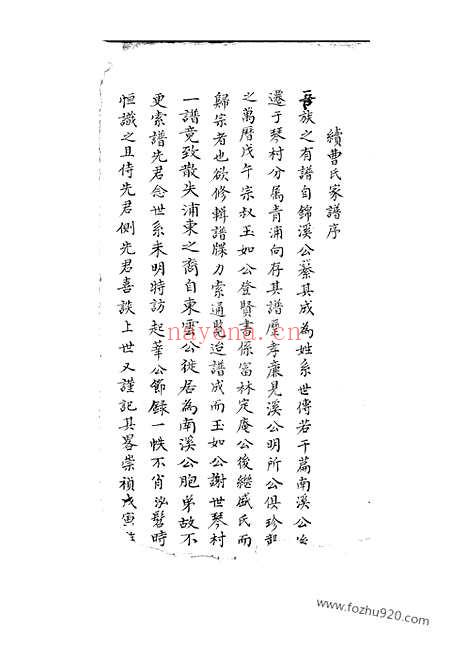 續曹氏家譜序
吾族之有譜自錦溪公纂其成為姓系世傳若干篇南溪公
遷于琴村分属青浦向存其譜歷孝廉見溪公明所公俱珍
之萬曆戊午宗叔玉如公登賢書係富林定庵公後繼盛氏而
歸宗者也欲修輯譜牒力索通覽迨譜成而玉如公謝世琴村
一譜竟致散失浦東之裔自東雲公徙居為南溪公胞弟故不
更索譜先君念世系未明時訪起莘公節錄一帙不肖泌髫時
恒識之且侍先君側先君喜談上世又謹記其畧崇禎戊寅
nayona.cn
www.fozhu920.com